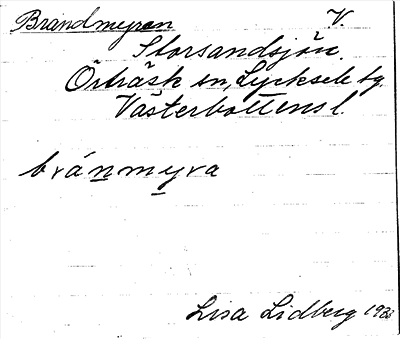 Brandmyran V.
Storsandsjön.
Örträsk sn, Lycksele tg.
Västerbottens l.
bránmyra
Lisa Lidberg